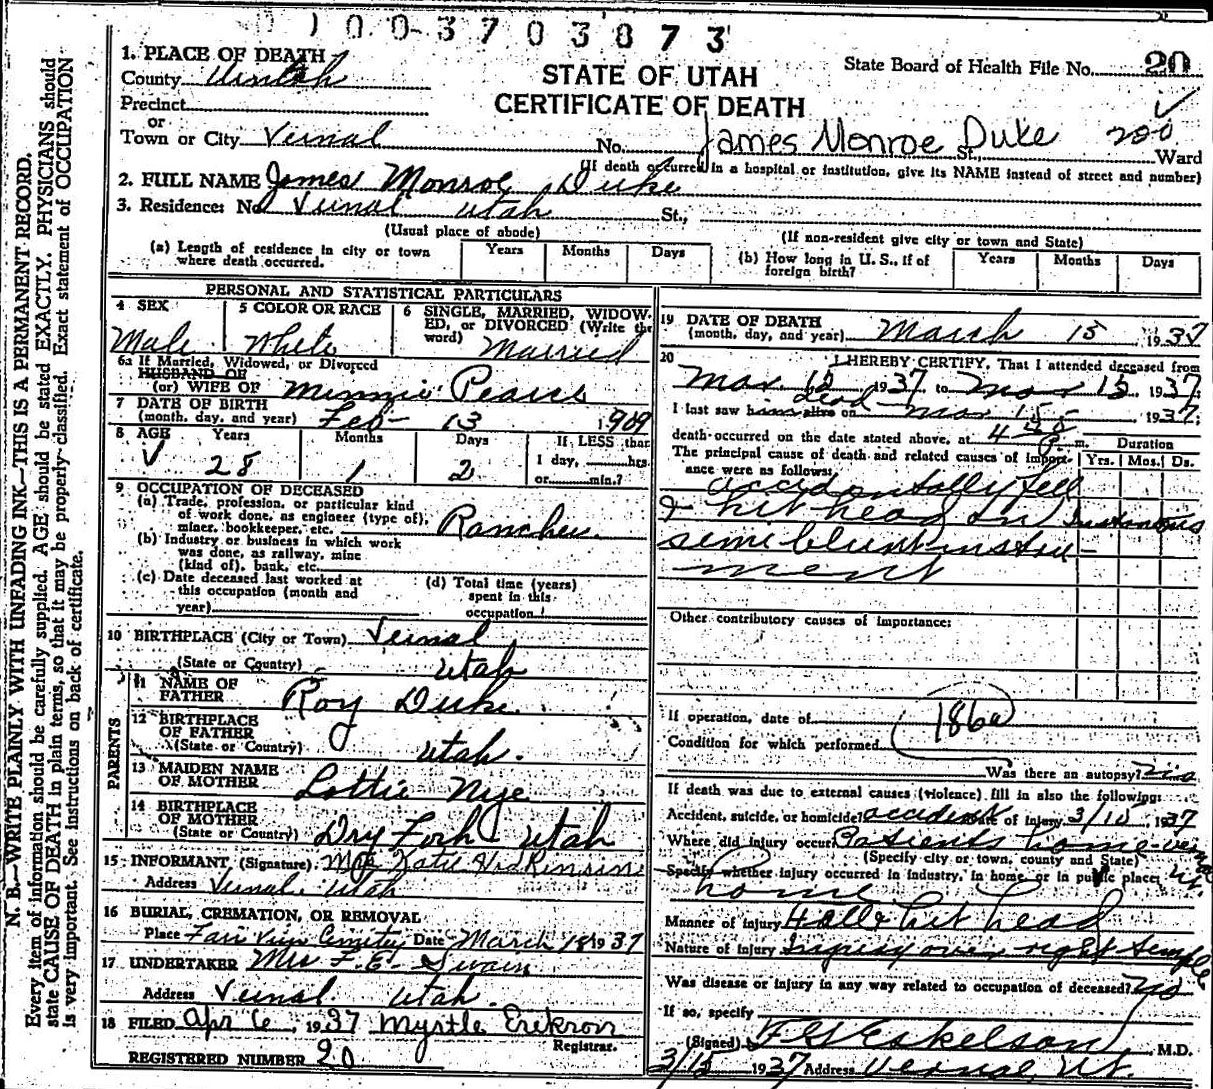 1003703873
1. PLACE OF DEATH
County Uintah
Precinct
or
Town or City Vernal
STATE OF UTAH
CERTIFICATE OF DEATH
State Board of Health File No. 20
No. James Monroe Duke St., 200 Ward
(If death occurred in a hospital or institution, give its NAME instead of street and number)
2. FULL NAME James Monroe Duke
3. Residence: No. Vernal Utah St.,
(Usual place of abode)
(If non-resident give city or town and State)
(a) Length of residence in city or town where death occurred. Years Months Days
(b) How long in U. S., if of foreign birth? Years Months Days
PERSONAL AND STATISTICAL PARTICULARS
4 SEX Male
5 COLOR OR RACE White
6 SINGLE, MARRIED, WIDOWED, or DIVORCED (Write the word) Married
6a If Married, Widowed, or Divorced
HUSBAND OF
(or) WIFE OF Minnie Pearce
7 DATE OF BIRTH
(month, day, and year) Feb- 13 1909
8 AGE Years 28 Months 1 Days 2
If LESS than 1 day, hrs. or min.?
9 OCCUPATION OF DECEASED
(a) Trade, profession, or particular kind of work done, as engineer (type of), miner, bookkeeper, etc. Rancher
(b) Industry or business in which work was done, as railway, mine (kind of), bank, etc.
(c) Date deceased last worked at this occupation (month and year)
(d) Total time (years) spent in this occupation
10 BIRTHPLACE (City or Town) Vernal
(State or Country) Utah
PARENTS
11 NAME OF FATHER Roy Duke
12 BIRTHPLACE OF FATHER (State or Country) Utah.
13 MAIDEN NAME OF MOTHER Lottie Nye
14 BIRTHPLACE OF MOTHER (State or Country) Dry Fork Utah
15 INFORMANT (Signature) Katie
Address Vernal Utah
16 BURIAL, CREMATION, OR REMOVAL
Place Fair View Cemetery Date March 18 1937
17 UNDERTAKER Mrs F. E. Swain
Address Vernal. Utah.
18 FILED Apr 6, 1937 Myrtle Erekson
Registrar.
REGISTERED NUMBER 20
19 DATE OF DEATH
(month, day, and year) March 15 1937
20 I HEREBY CERTIFY, That I attended deceased from
Mar. 12 1937 to Mar 15 1937
I last saw him alive on dead Mar 15 1937
death occurred on the date stated above, at 4 P m.
The principal cause of death and related causes of importance were as follows:
Duration
Yrs. Mos. Ds.
accidentally fell
& hit head on
semi blunt instru-
ment
Other contributory causes of importance:
If operation, date of 186a
Condition for which performed
Was there an autopsy?
If death was due to external causes (violence) fill in also the following:
Accident, suicide, or homicide? accident Date of injury 3/10, 1937
Where did injury occur? Patients home-Vernal Ut.
(Specify city or town, county and State)
Specify whether injury occurred in industry, in home, or in public place.
home
Manner of injury Fall & hit head
Nature of injury Injury over right temple
Was disease or injury in any way related to occupation of deceased? No
If so, specify
(Signed) Eskelson, M.D.
3/15 1937 Address Vernal, Ut.
N. B.—WRITE PLAINLY WITH UNFADING INK—THIS IS A PERMANENT RECORD.
Every item of information should be carefully supplied. AGE should be stated EXACTLY. PHYSICIANS should
state CAUSE OF DEATH in plain terms, so that it may be properly classified. Exact statement of OCCUPATION
is very important. See instructions on back of certificate.